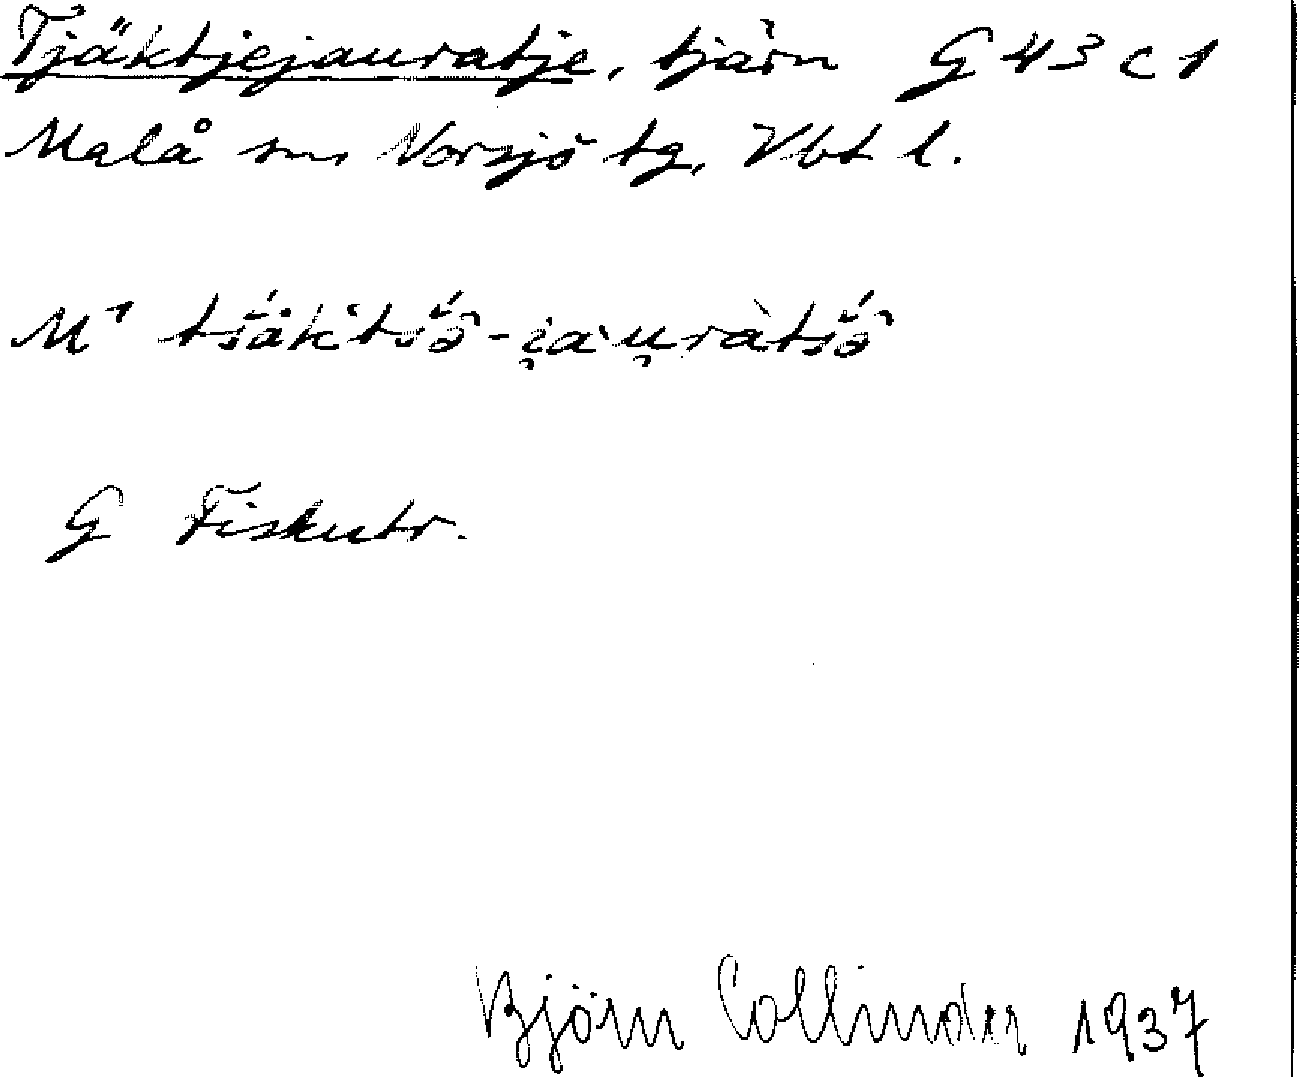 Tjäktjejauratje, tjärn G 43 c 1
Malå sn, Norsjö tg, Vbt l.
M¹
G Fiskutr.
Björn Collinder 1937